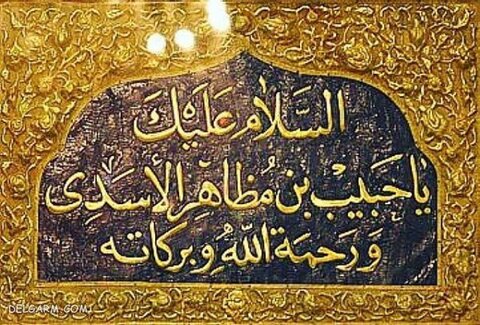 السَّلامُ عَلَيْكَ
يا حَبيبْ بن مُظاهِر الأسَدِى
وَ رَحمَة اللّهُ وبركاته
DELGARM.COM